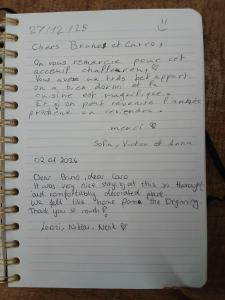 27/12/25
Chers Bruno et Carro,
On vous remercie pour cet
acceuil chaleureux,
Vous avez un très bel appart.
on a bien dormi et la
cuisine est magnifique.
Et si on peut revenire l'année
prochaine on reviendra.
merci
Sofia, Victor et Anna
02.01.2026
Dear Bruno, dear Caro
It was very nice staying at this so
and comfortably decorated place.
We felt like home from the beginning.
Thank you so much!
Leoni, Niklas,